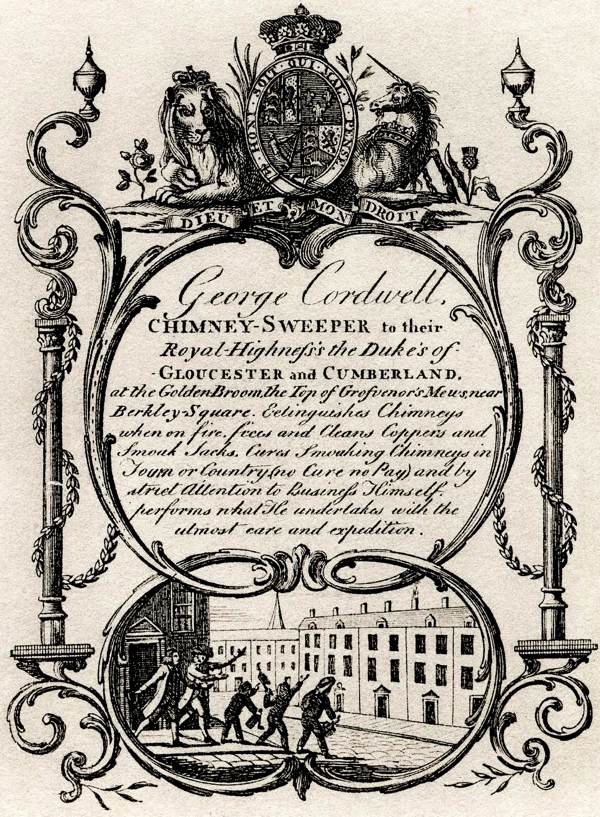 HONI · SOIT · QUI · MAL · Y · PENSE
DIEU ET MON DROIT
George Cordwell,
CHIMNEY-SWEEPER to their
Royal-Highneſs's the Duke's of-
-GLOUCESTER and CUMBERLAND,
at the Golden Broom, the Top of Groſvenor's Mews, near
Berkley-Square. Extinguishes Chimneys
when on fire, fixes and Cleans Coppers and
Smoak Jacks, Cures Smoaking Chimneys in
Town or Country, (no Cure no Pay) and by
strict Attention to Buſineſs Himself
performs what He undertakes with the
utmost care and expedition.